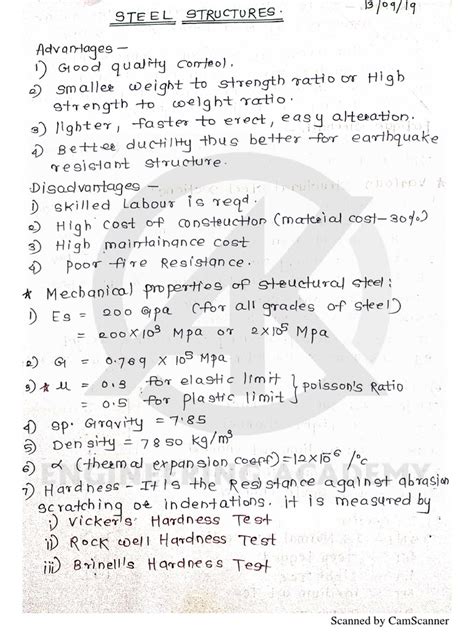 13/09/19
STEEL STRUCTURES.
Advantages –
1) Good quality control.
2) Smaller weight to strength ratio or High
strength to weight ratio.
3) lighter, faster to erect, easy alteration.
4) Better ductility thus better for earthquake
resistant structure.
Disadvantages –
1) skilled Labour is reqd.
2) High cost of construction (material cost-30%)
3) High maintainance cost
4) Poor fire Resistance.
* Mechanical properties of structural steel:
1) Es = 200 Gpa (for all grades of steel)
= 200×10³ Mpa or 2×10⁵ Mpa
2) G = 0.769 × 10⁵ Mpa
3)* μ = 0.3 for elastic limit } poisson's Ratio
= 0.5 for plastic limit
4) sp. Gravity = 7.85
5) Density = 7850 kg/m³
6) α (thermal expansion coeff) = 12×10⁻⁶ /°c
7) Hardness - It Is the Resistance against abrasion
scratching or indentations. it is measured by
i) Vicker's Hardness Test
ii) Rock well Hardness Test
iii) Brinell's Hardness Test
ENGINEERING ACADEMY
Scanned by CamScanner